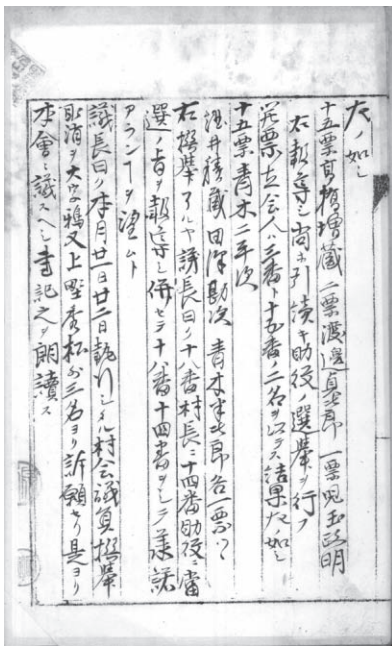 左ノ如シ
十五票髙橋増蔵 二票渡邊真七郎 一票児玉政明
右報導シ尚ホ引續キ助役ノ選挙ヲ行フ
開票立会人ハ三番ト十五番ノ二名ヲ以テス結果左ノ如シ
十五票青木二平次
酒井積蔵 田澤勘次 青木半七郎各一票ツヽ
右撰挙アルヤ議長曰ク十八番村長ニ十四番助役ニ當
選ノ旨ヲ報導シ併セテ十八番十四番ヲシテ承諾
アランコヲ望ムト
議長曰ク本月廿一日廿二日執行シタル村会議員撰挙
取消ヲ大字鴨又上野秀松外三名ヨリ訴願セリ是ヨリ
本會ニ議スヘシ書記之ヲ朗讀ス